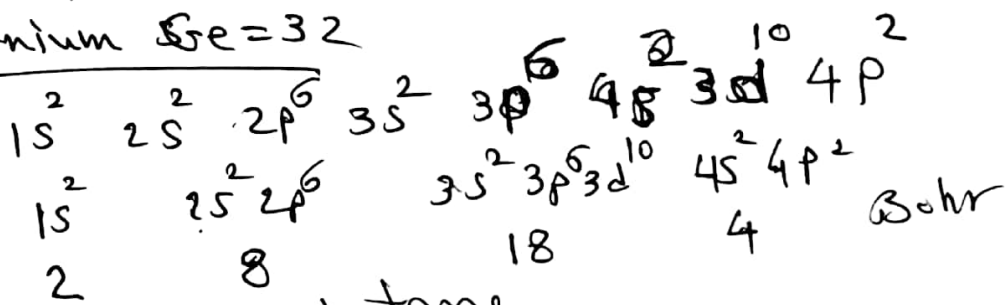 nium Ge = 32
1s² 2s² 2p⁶ 3s² 3p⁶ 4s² 3d¹⁰ 4p²
1s² 2s² 2p⁶ 3s² 3p⁶ 3d¹⁰ 4s² 4p² Bohr
2 8 18 4